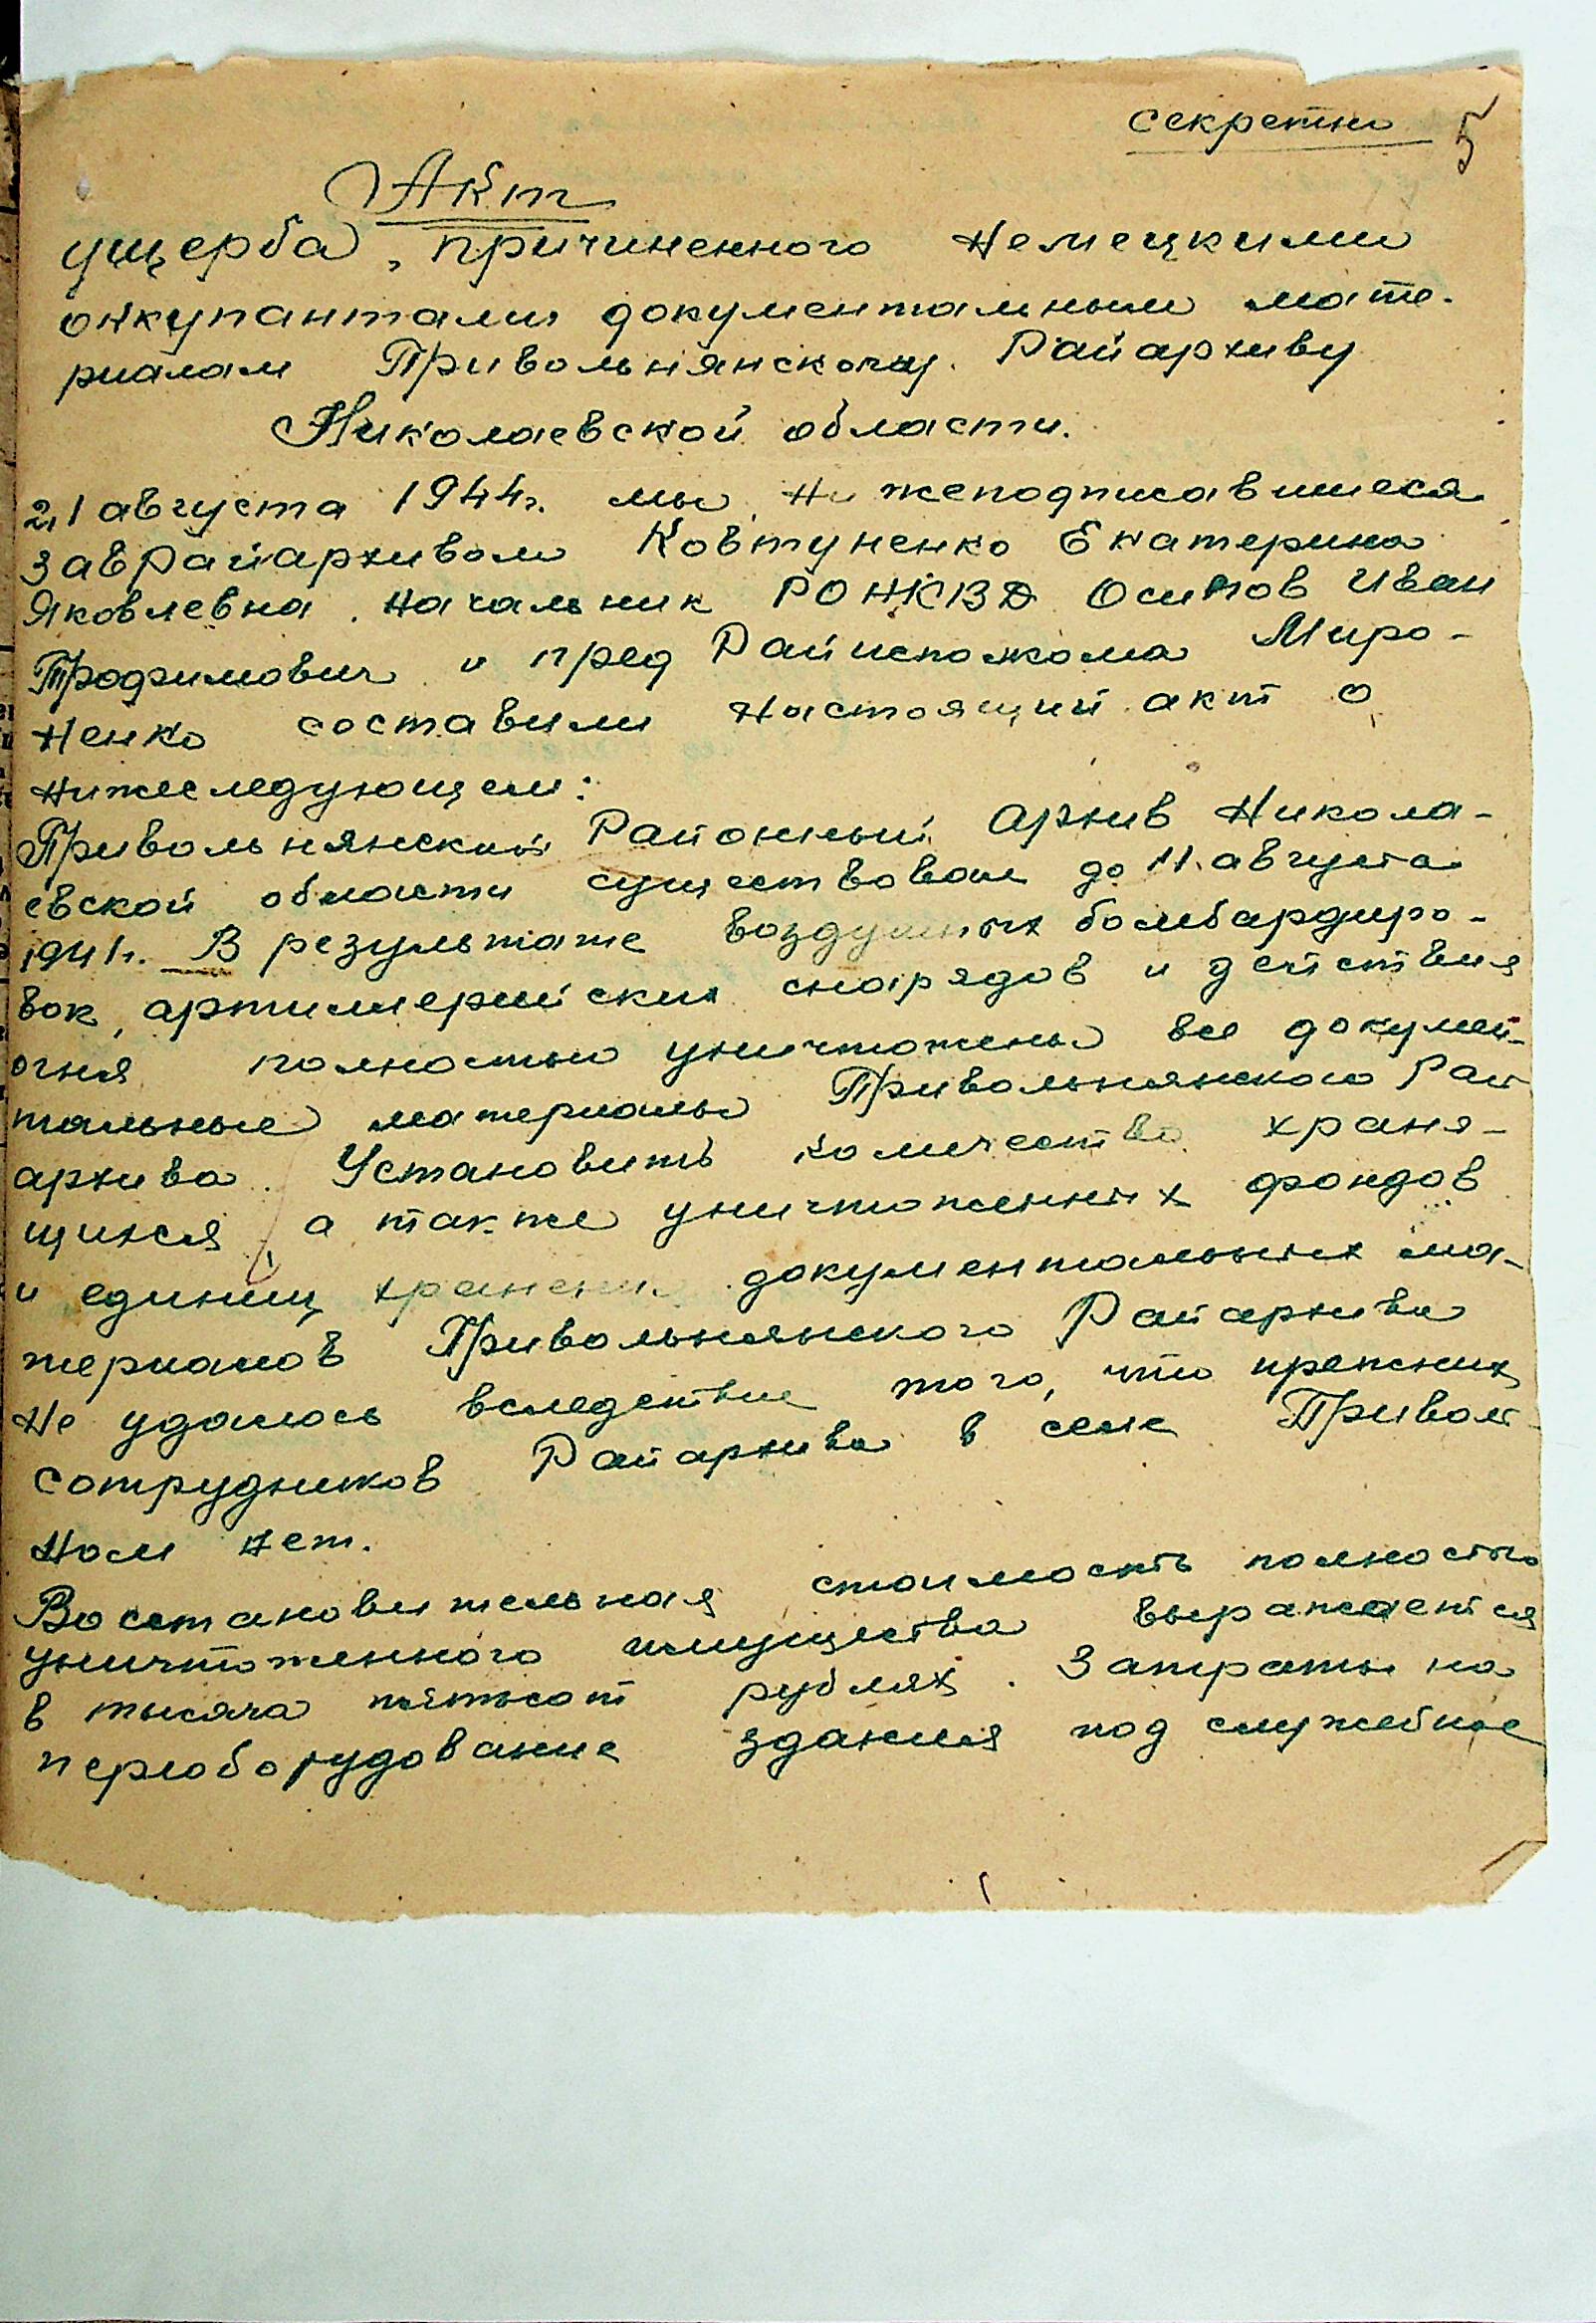 секретно 5
Акт
ущерба, причиненного немецкими
оккупантами документальным мате-
риалам Привольнянскому Райархиву
Николаевской области.
21 августа 1944г. мы, нижеподписавшиеся
завРайархивом Ковтуненко Екатерина
Яковлевна, начальник РОНКВД Осипов Иван
Трофимович и пред Райисполкома Миро-
ненко составили настоящий акт о
нижеследующем:
Привольнянский Районный архив Никола-
евской области существовал до 11 августа
1941г. В результате воздушных бомбардиро-
вок, артиллерийских снарядов и действия
огня полностью уничтожены все докумен-
тальные материалы Привольнянского Рай
архива. Установить количество храня-
щихся, а также уничтоженных фондов
и единиц хранения документальных ма-
териалов Привольнянского Райархива
не удалось вследствие того, что прежних
сотрудников Райархива в селе Приволь
ном нет.
Восстановительная стоимость полностью
уничтоженного имущества выражается
в тысяча пятьсот рублях. Затраты на
переоборудование здания под служебное